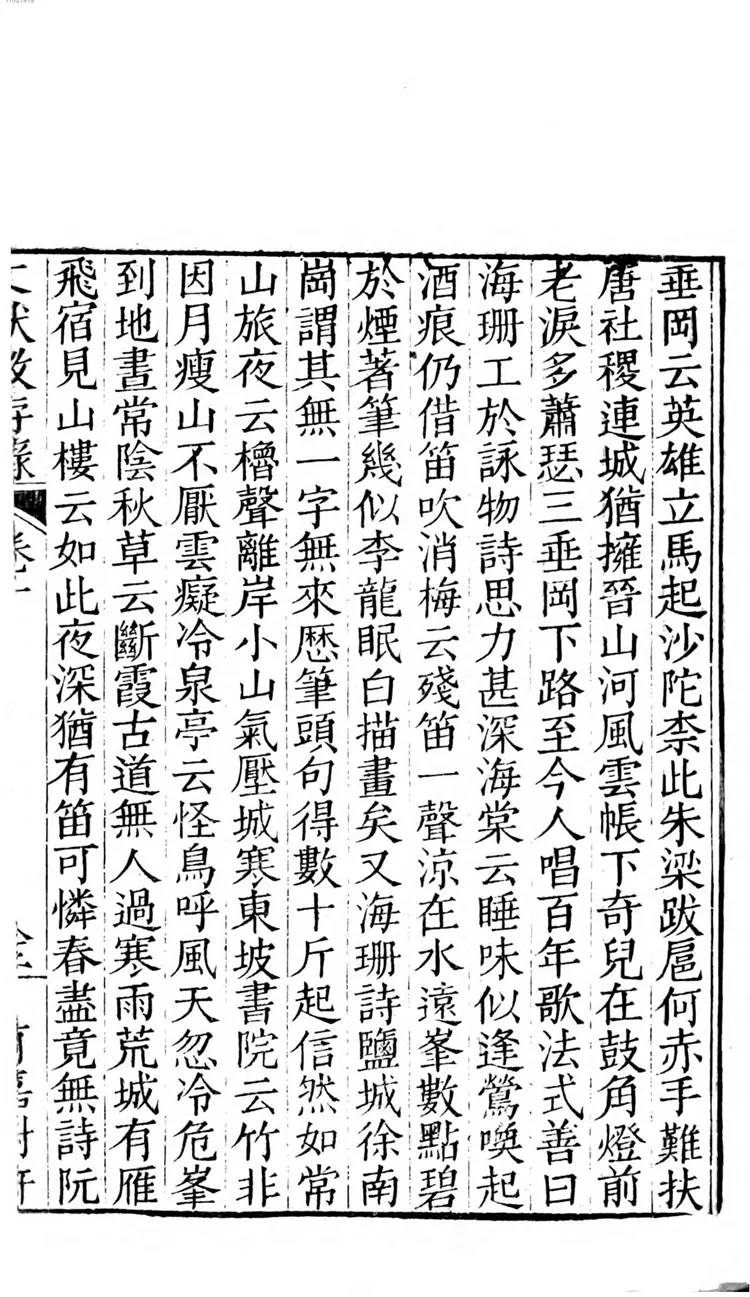 垂岡云英雄立馬起沙陀柰此朱梁跋扈何赤手難扶
唐社稷連城猶擁晉山河風雲帳下奇兒在鼓角燈前
老淚多蕭瑟三垂岡下路至今人唱百年歌法式善曰
海珊工於詠物詩思力甚深海棠云睡味似逢鶯喚起
酒痕仍借笛吹消梅云殘笛一聲涼在水遠峯數點碧
於煙著筆幾似李龍眠白描畫矣又海珊詩鹽城徐南
崗謂其無一字無來歷筆頭句得數十斤起信然如常
山旅夜云櫓聲離岸小山氣壓城寒東坡書院云竹非
因月瘦山不厭雲癡冷泉亭云怪鳥呼風天忽冷危峯
到地晝常陰秋草云斷霞古道無人過寒雨荒城有雁
飛宿見山樓云如此夜深猶有笛可憐春盡竟無詩阮